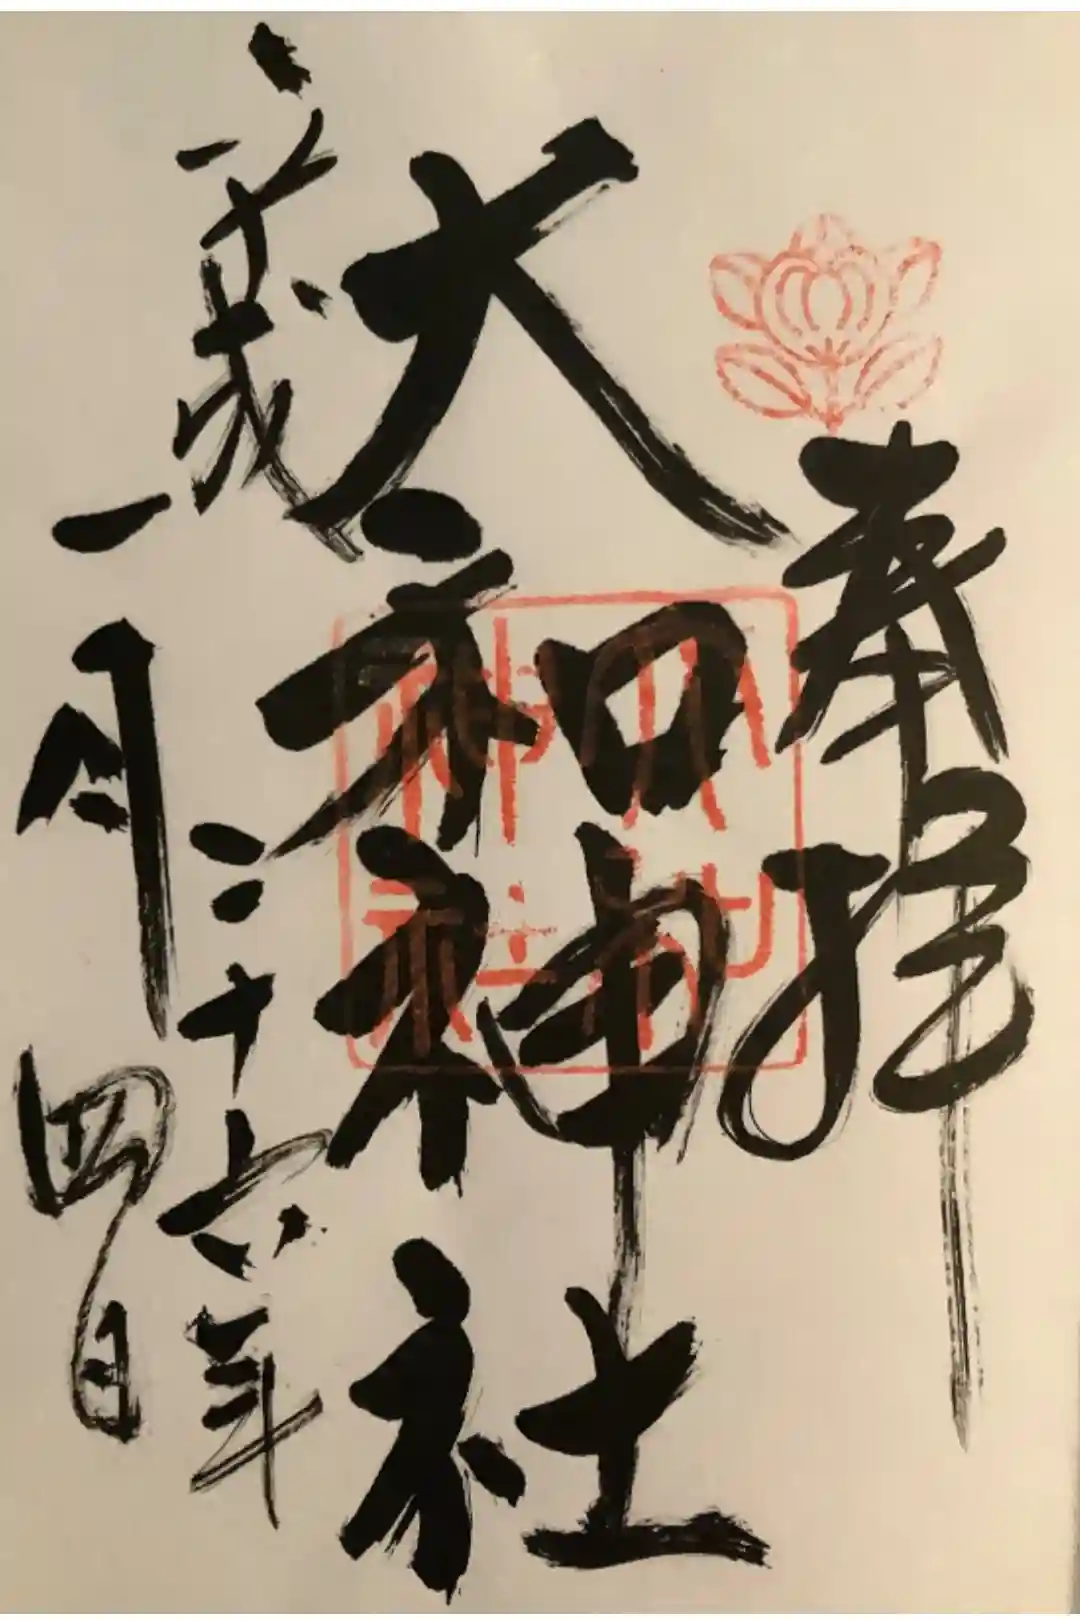 奉拝
大和神社
大和神社
平成二十六年
一月四日